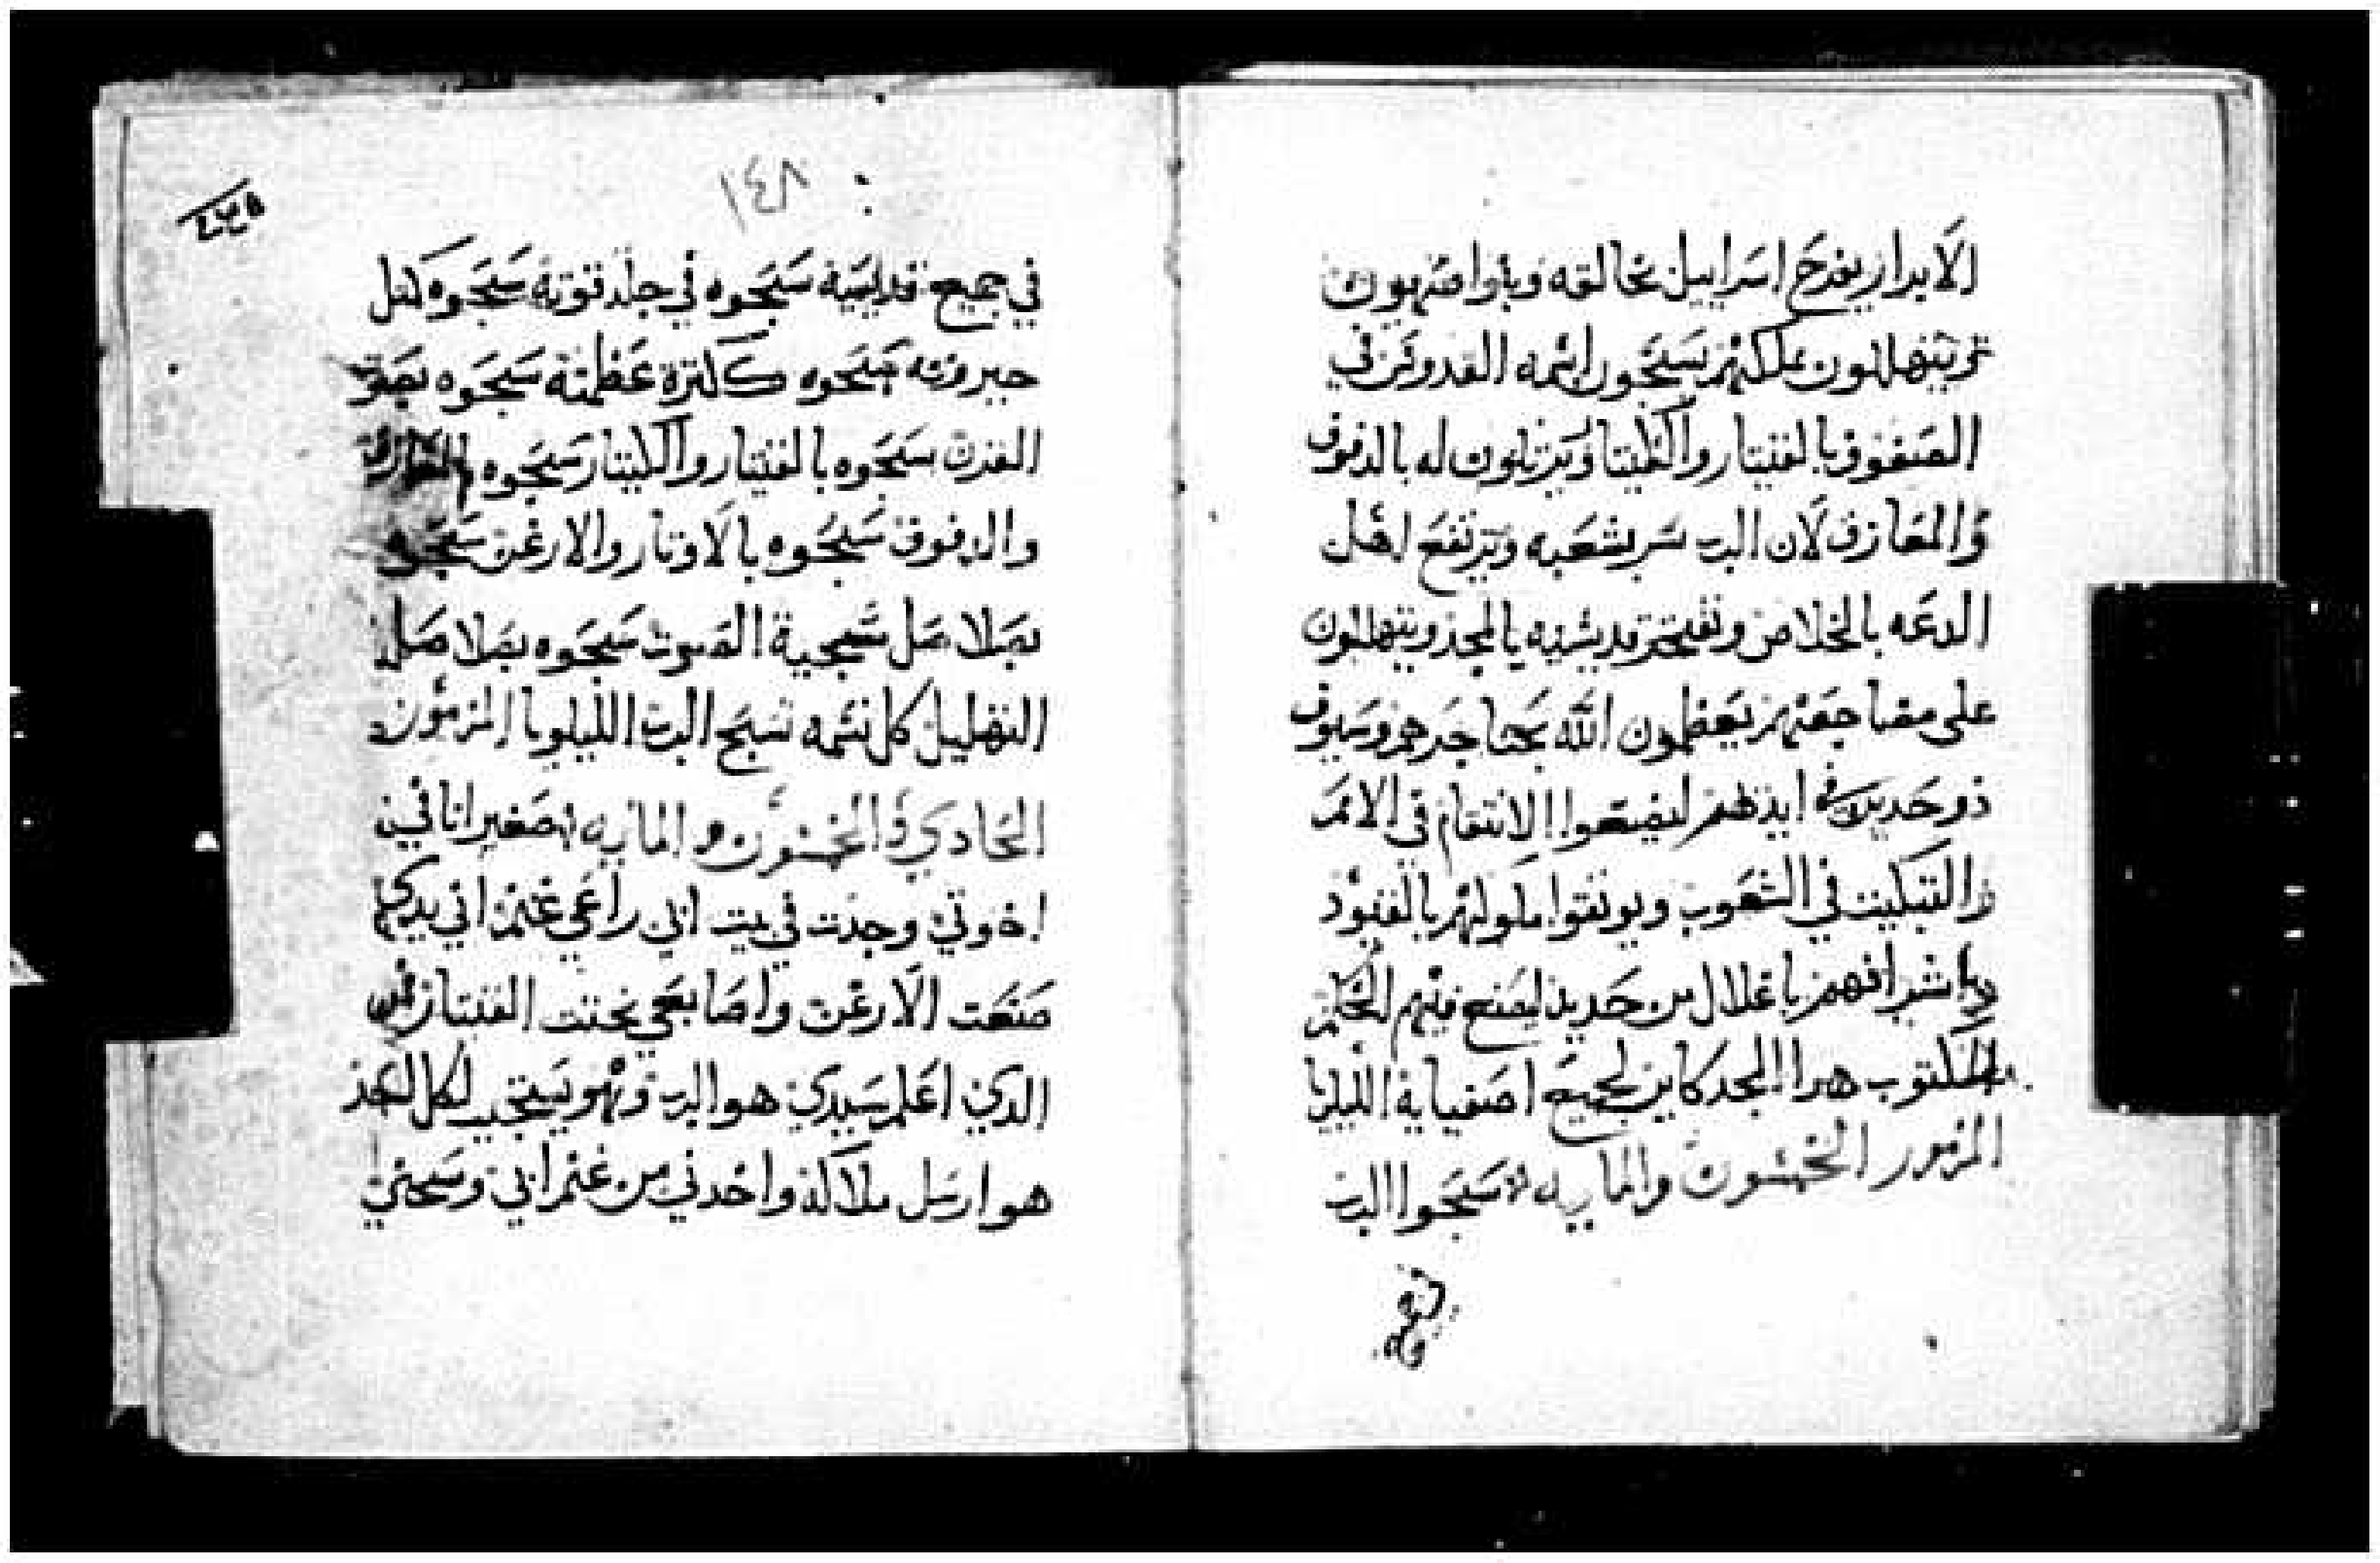 الابرار يفرح اسراييل بخالقه وبنوا صهيون
يتهللون بملكهم يسبحون اسمه القدوس في
الصفوف بالقيتار والكيتا ويرتلون له بالدفوف
والمعازف لان الرب سر بشعبه ويرتفع اهل
الدعه بالخلاص وتفتخر قديسيه بالمجد ويتهللون
على مضاجعهم يعظمون الله بحناجرهم وسيوف
ذو حدين في ايديهم ليصنعوا الانتقام في الامم
والتبكيت في الشعوب ويوثقوا ملوكهم بالقيود
واشرافهم باغلال من حديد ليصنع فيهم الحكم
المكتوب هدا المجد كاين لجميع اصفيايه الليلويا
المزمور الخمسون والمايه سبحوا الرب
١٤٨
في جميع قديسيه سبحوه في جلد قوته سبحوه كمل
جبروته سبحوه ككثرة عظمته سبحوه بصوت
القرن سبحوه بالقيتار والكيتار سبحوه بالمعازف
والدفوف سبحوه بالاوتار والارغن سبحوه
بصلاصل شجية الصوت سبحوه بصلاصل
التهليل كل نسمه تسبح الرب الليلويا المزمور
الحادي والخمسون والمايه صغير انا في
اخوتي وحدت في بيت ابي راعي غنم ابي يدي
صنعت الارغن واصابعي نحتت القيتار من
الدي اعلم سيدي هو الرب وهو يستجيب لكل احد
هو ارسل ملاكه واخدني من غنم ابي ومسحني